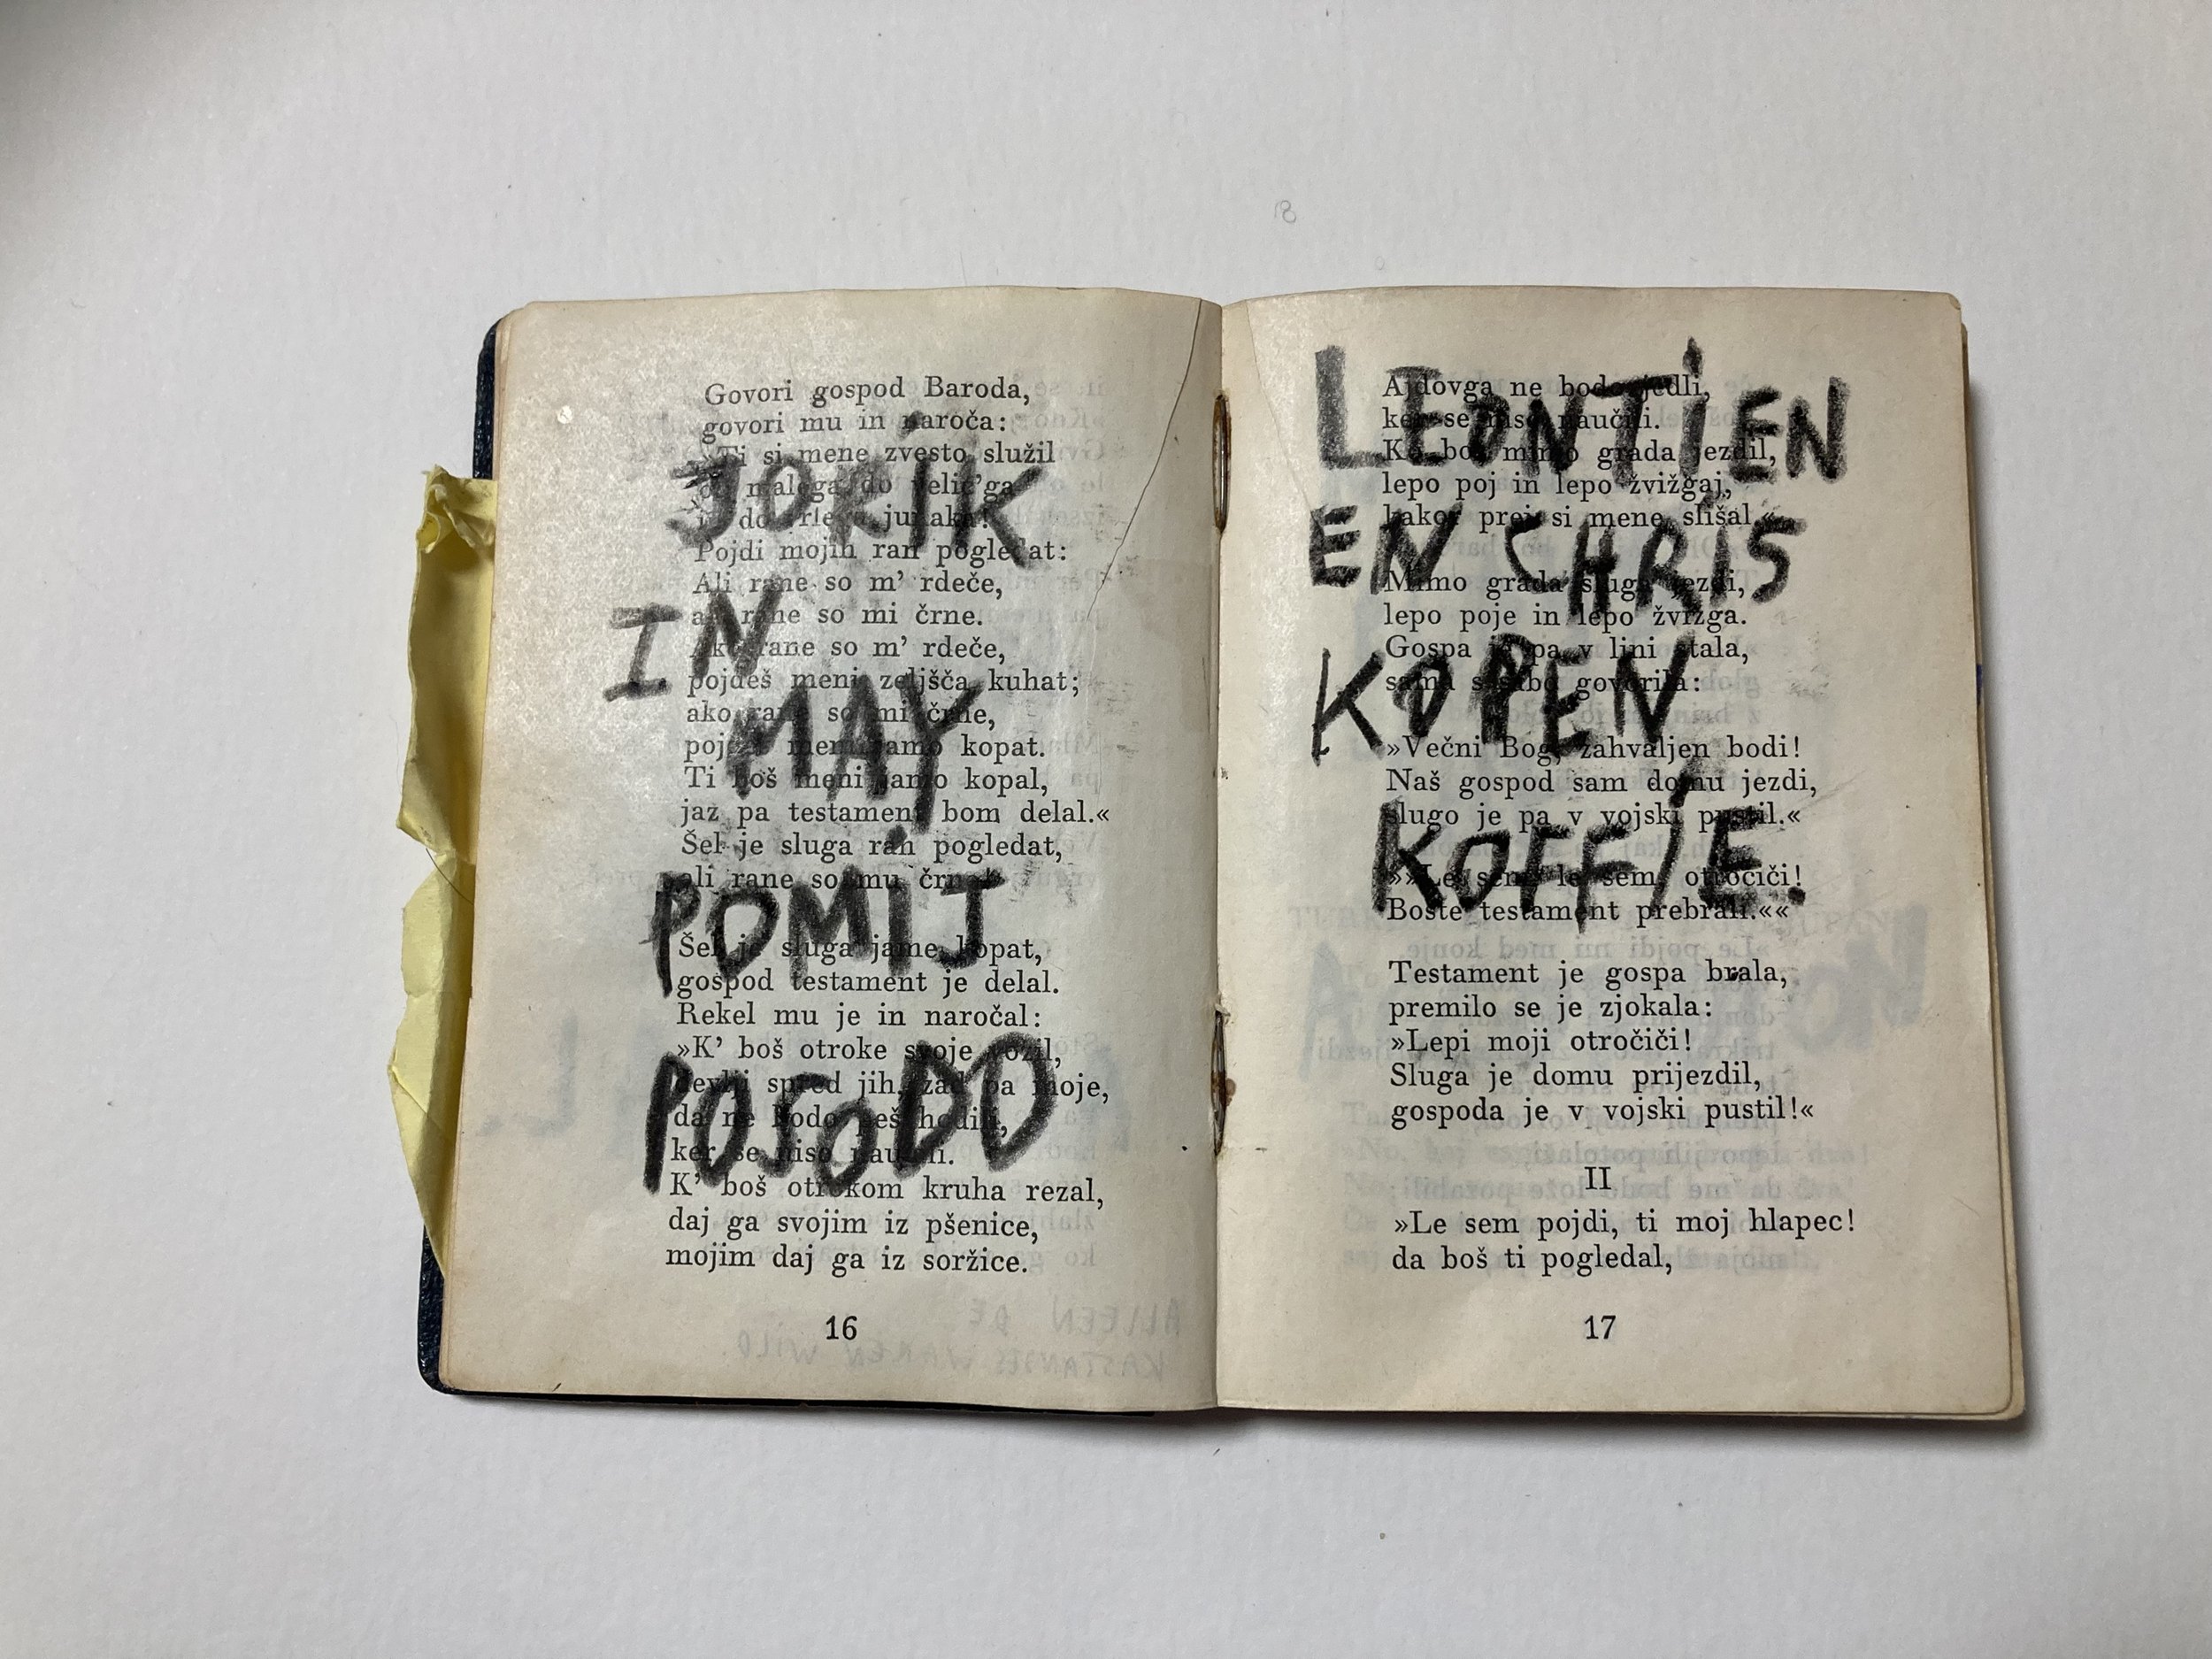 Govori gospod Baroda,
govori mu in naroča:
»Ti si mene zvesto služil
malega do velic'ga
Pojdi mojih ran pogledat:
Ali rane so m' rdeče,
al' rane so mi črne.
Ako rane so m' rdeče,
pojdeš meni zeljšča kuhat;
ako rane so mi črne,
pojdeš meni jamo kopat.
Ti boš meni jamo kopal,
jaz pa testament bom delal.«
Šel je sluga ran pogledat,
ali rane so mu črne.
Šel je sluga jame kopat,
gospod testament je delal.
Rekel mu je in naročal:
»K' boš otroke svoje vozil,
spred jih, zad pa moje,
da ne bodo peš hodili,
ker se niso naučili.
K' boš otrokom kruha rezal,
daj ga svojim iz pšenice,
mojim daj ga iz soržice.
16
JORIK
IN
MAY
POMIJ
POSODO
Ajdovga ne bodo jedli,
ker se niso naučili.
Ko boš mimo grada jezdil,
lepo poj in lepo žvižgaj,
kakor prej si mene slišal.«
Mimo grada sluga jezdi,
lepo poje in lepo žvižga.
Gospa je pa v lini stala,
sama s sabo govorila:
»Večni Bog, zahvaljen bodi!
Naš gospod sam domu jezdi,
slugo je pa v vojski pustil.«
»»Le sem, le sem, otročiči!
Boste testament prebrali.««
Testament je gospa brala,
premilo se je zjokala:
»Lepi moji otročiči!
Sluga je domu prijezdil,
gospoda je v vojski pustil!«
II
»Le sem pojdi, ti moj hlapec!
da boš ti pogledal,
17
LEONTIEN
EN CHRIS
KOPEN
KOFFIE.